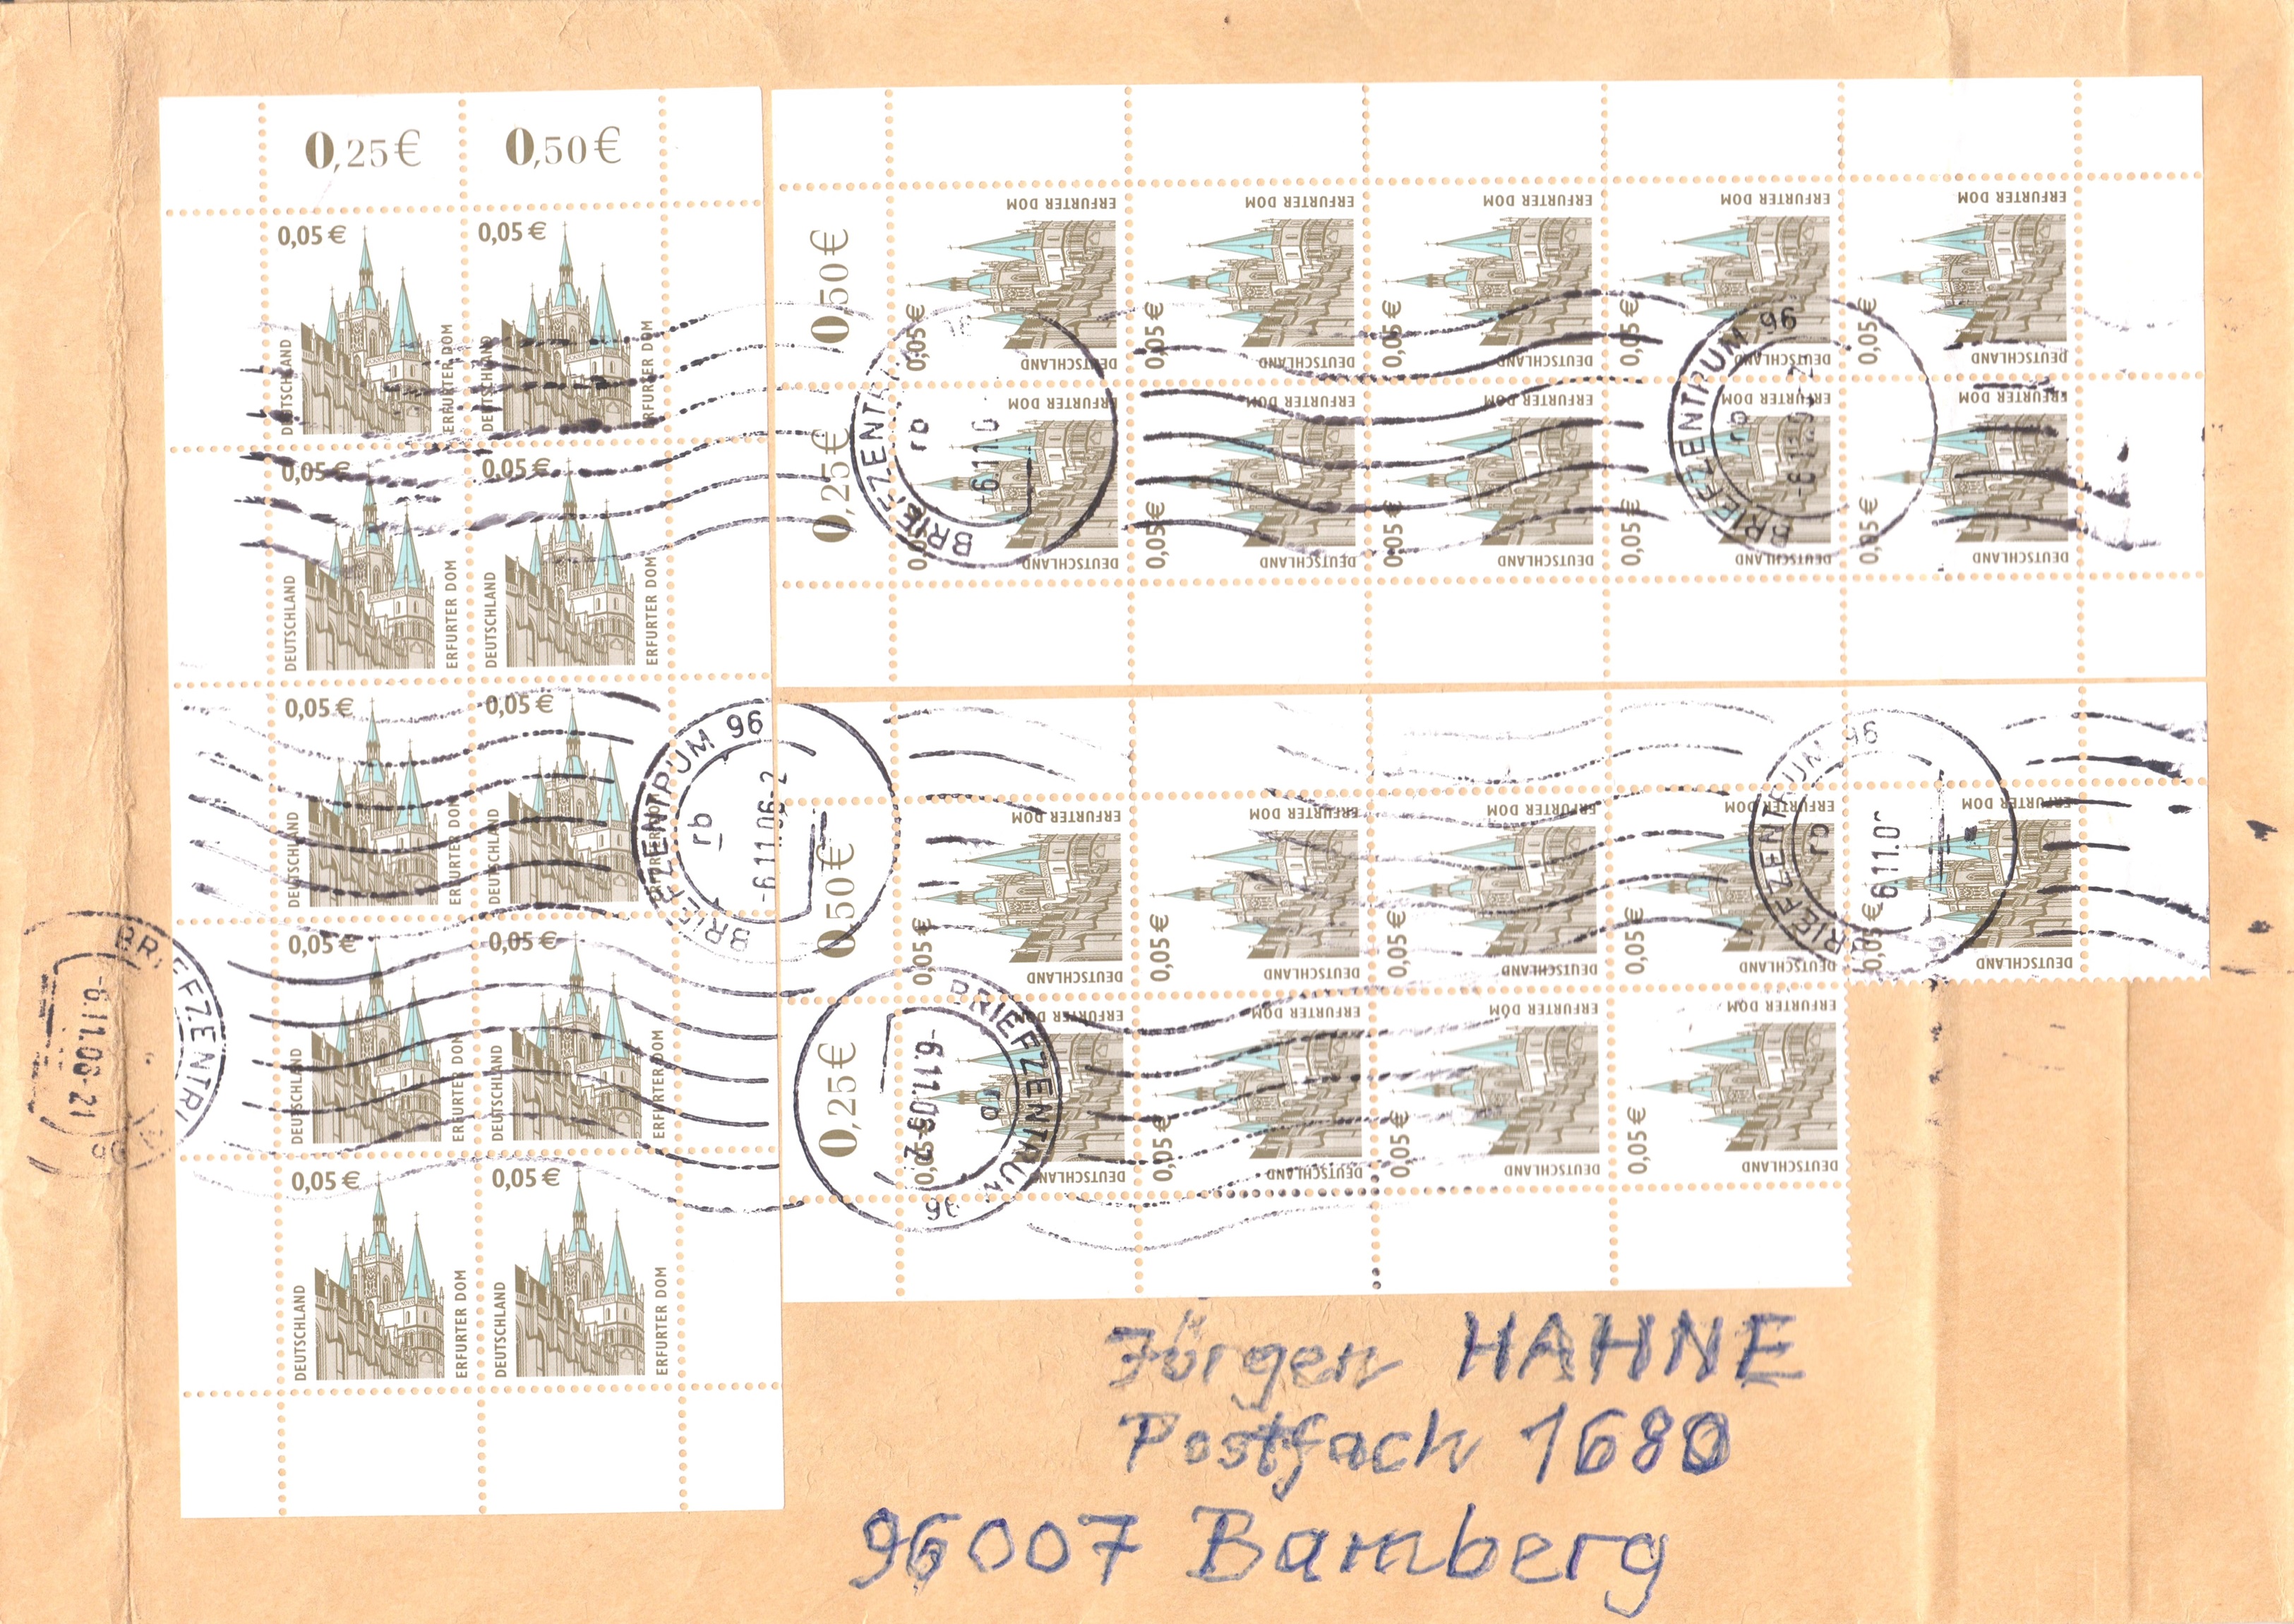 0,25€ 0,50€
0,05€ 0,05€
DEUTSCHLAND ERFURTER DOM DEUTSCHLAND ERFURTER DOM
0,05€ 0,05€
DEUTSCHLAND ERFURTER DOM DEUTSCHLAND ERFURTER DOM
0,05€ 0,05€
DEUTSCHLAND ERFURTER DOM DEUTSCHLAND ERFURTER DOM
0,05€ 0,05€
DEUTSCHLAND ERFURTER DOM DEUTSCHLAND ERFURTER DOM
0,05€ 0,05€
DEUTSCHLAND ERFURTER DOM DEUTSCHLAND ERFURTER DOM
0,50€
ERFURTER DOM ERFURTER DOM ERFURTER DOM ERFURTER DOM ERFURTER DOM
0,05€ 0,05€ 0,05€ 0,05€ 0,05€
DEUTSCHLAND DEUTSCHLAND DEUTSCHLAND DEUTSCHLAND DEUTSCHLAND
0,25€
ERFURTER DOM ERFURTER DOM ERFURTER DOM ERFURTER DOM ERFURTER DOM
0,05€ 0,05€ 0,05€ 0,05€ 0,05€
DEUTSCHLAND DEUTSCHLAND DEUTSCHLAND DEUTSCHLAND DEUTSCHLAND
BRIEFZENTRUM 96
rb
0,50€
ERFURTER DOM ERFURTER DOM ERFURTER DOM ERFURTER DOM ERFURTER DOM
0,05€ 0,05€ 0,05€ 0,05€ 0,05€
DEUTSCHLAND DEUTSCHLAND DEUTSCHLAND DEUTSCHLAND DEUTSCHLAND
0,25€
ERFURTER DOM ERFURTER DOM ERFURTER DOM ERFURTER DOM
0,05€ 0,05€ 0,05€ 0,05€
DEUTSCHLAND DEUTSCHLAND DEUTSCHLAND DEUTSCHLAND
BRIEFZENTRUM 96
rb
-6.11.06-2
BRIEFZENTRUM 96
rb
-6.11.06-21
Jürgen HAHNE
Postfach 1680
96007 Bamberg